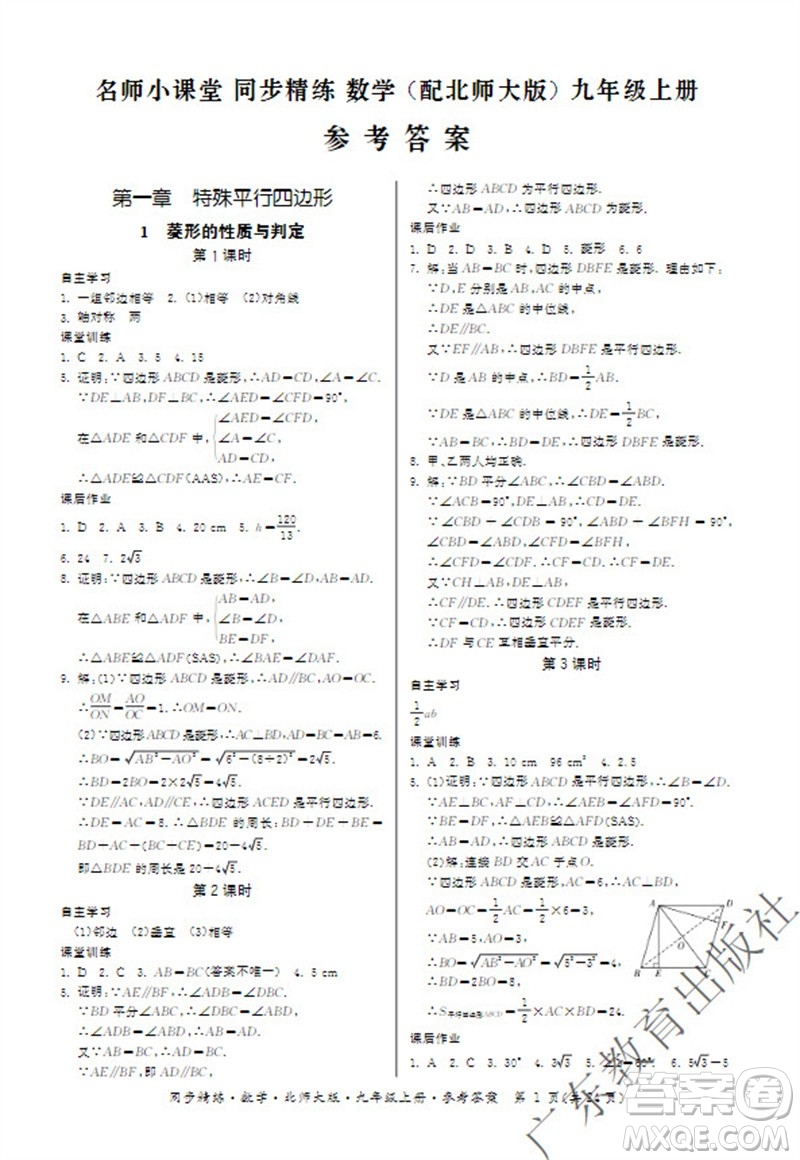 名师小课堂 同步精练 数学（配北师大版）九年级上册
参考答案
第一章 特殊平行四边形
1 菱形的性质与判定
第1课时
自主学习
1. 一组邻边相等 2. (1)相等 (2)对角线
3. 轴对称 两
课堂训练
1. C 2. A 3. 5 4. 15
5. 证明:∵四边形ABCD是菱形,∴AD=CD,∠A=∠C.
∵DE⊥AB,DF⊥BC,∴∠AED=∠CFD=90°,
在△ADE和△CDF中,
∠AED=∠CFD,
∠A=∠C,
AD=CD,
∴△ADE≌△CDF(AAS),∴AE=CF.
课后作业
1. D 2. A 3. B 4. 20 cm 5. h=120/13.
6. 24 7. 2√3
8. 证明:∵四边形ABCD是菱形,∴∠B=∠D,AB=AD.
在△ABE和△ADF中,
AB=AD,
∠B=∠D,
BE=DF,
∴△ABE≌△ADF(SAS),∴∠BAE=∠DAF.
9. 解:(1)∵四边形ABCD是菱形,∴AD∥BC,AO=OC.
∴OM/ON=AO/OC=1.∴OM=ON.
(2)∵四边形ABCD是菱形,∴AC⊥BD,AD=BC=AB=6.
∴BO=√(AB²-AO²)=√(6²-(8÷2)²)=2√5.
∴BD=2BO=2×2√5=4√5.
∵DE∥AC,AD∥CE,∴四边形ACED是平行四边形,
∴DE=AC=8.∴△BDE的周长:BD+DE+BE=
BD+AC+(BC+CE)=20+4√5.
即△BDE的周长是20+4√5.
第2课时
自主学习
(1)邻边 (2)垂直 (3)相等
课堂训练
1. D 2. C 3. AB=BC(答案不唯一) 4. 5 cm
5. 证明:∵AE∥BF,∴∠ADB=∠DBC.
∵BD平分∠ABC,∴∠DBC=∠ABD,
∴∠ADB=∠ABD,∴AB=AD.
又∵AB=BC,∴AD=BC.
∵AE∥BF,即AD∥BC,
∴四边形ABCD为平行四边形.
又∵AB=AD,∴四边形ABCD为菱形.
课后作业
1. D 2. D 3. C 4. D 5. 菱形 6. 6
7. 解:当AB=BC时,四边形DBFE是菱形. 理由如下:
∵D,E分别是AB,AC的中点,
∴DE是△ABC的中位线,
∴DE∥BC.
又∵EF∥AB,∴四边形DBFE是平行四边形.
∵D是AB的中点,∴BD=1/2AB.
∵DE是△ABC的中位线,∴DE=1/2BC.
∵AB=BC,∴BD=DE,∴四边形DBFE是菱形.
8. 甲、乙两人均正确.
9. 解:∵BD平分∠ABC,∴∠CBD=∠ABD.
∵∠ACB=90°,DE⊥AB,∴CD=DE.
∵∠CBD+∠CDB=90°,∠ABD+∠BFH=90°,
∴∠CDB=∠BFH. ∵∠BFH=∠CFD,
∴∠CFD=∠CDF.∴CF=CD.∴CF=DE.
又∵CH⊥AB,DE⊥AB,
∴CF∥DE.∴四边形CDEF是平行四边形.
∵CF=CD,∴四边形CDEF是菱形.
∴DF与CE互相垂直平分.
第3课时
自主学习
1/2ab
课堂训练
1. A 2. B 3. 10 cm 96 cm² 4. 2.5
5. (1)证明:∵四边形ABCD是平行四边形,∴∠B=∠D.
∵AE⊥BC,AF⊥CD,∴∠AEB=∠AFD=90°.
∵BE=DF,∴△AEB≌△AFD(SAS).
∴AB=AD.∴四边形ABCD是菱形.
(2)解:连接BD交AC于点O.
∵四边形ABCD是菱形,AC=6,∴AC⊥BD,
AO=OC=1/2AC=1/2×6=3,
∵AB=5,
∴BO=√(AB²-AO²)=4.
∴BD=2BO=8,
∴S平行四边形ABCD=1/2×AC×BD=24.
A D F O B E C
课后作业
1. A 2. C 3. 30° 4. 3√3 5. ∠α=60° 6. 5√3-5
同步精练·数学·北师大版·九年级上册·参考答案 第1页(共24页)
广东教育出版社
答案圈
MXQE.COM